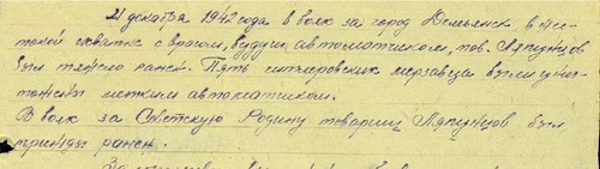 21 декабря 1942 года в боях за город Демьянск в жес-
токой схватке с врагом, будучи автоматчиком, тов. Ляпунцов
был тяжело ранен. Пять гитлеровских мерзавца были унич-
тожены метким автоматчиком.
В боях за Советскую Родину товарищ Ляпунцов был
трижды ранен.